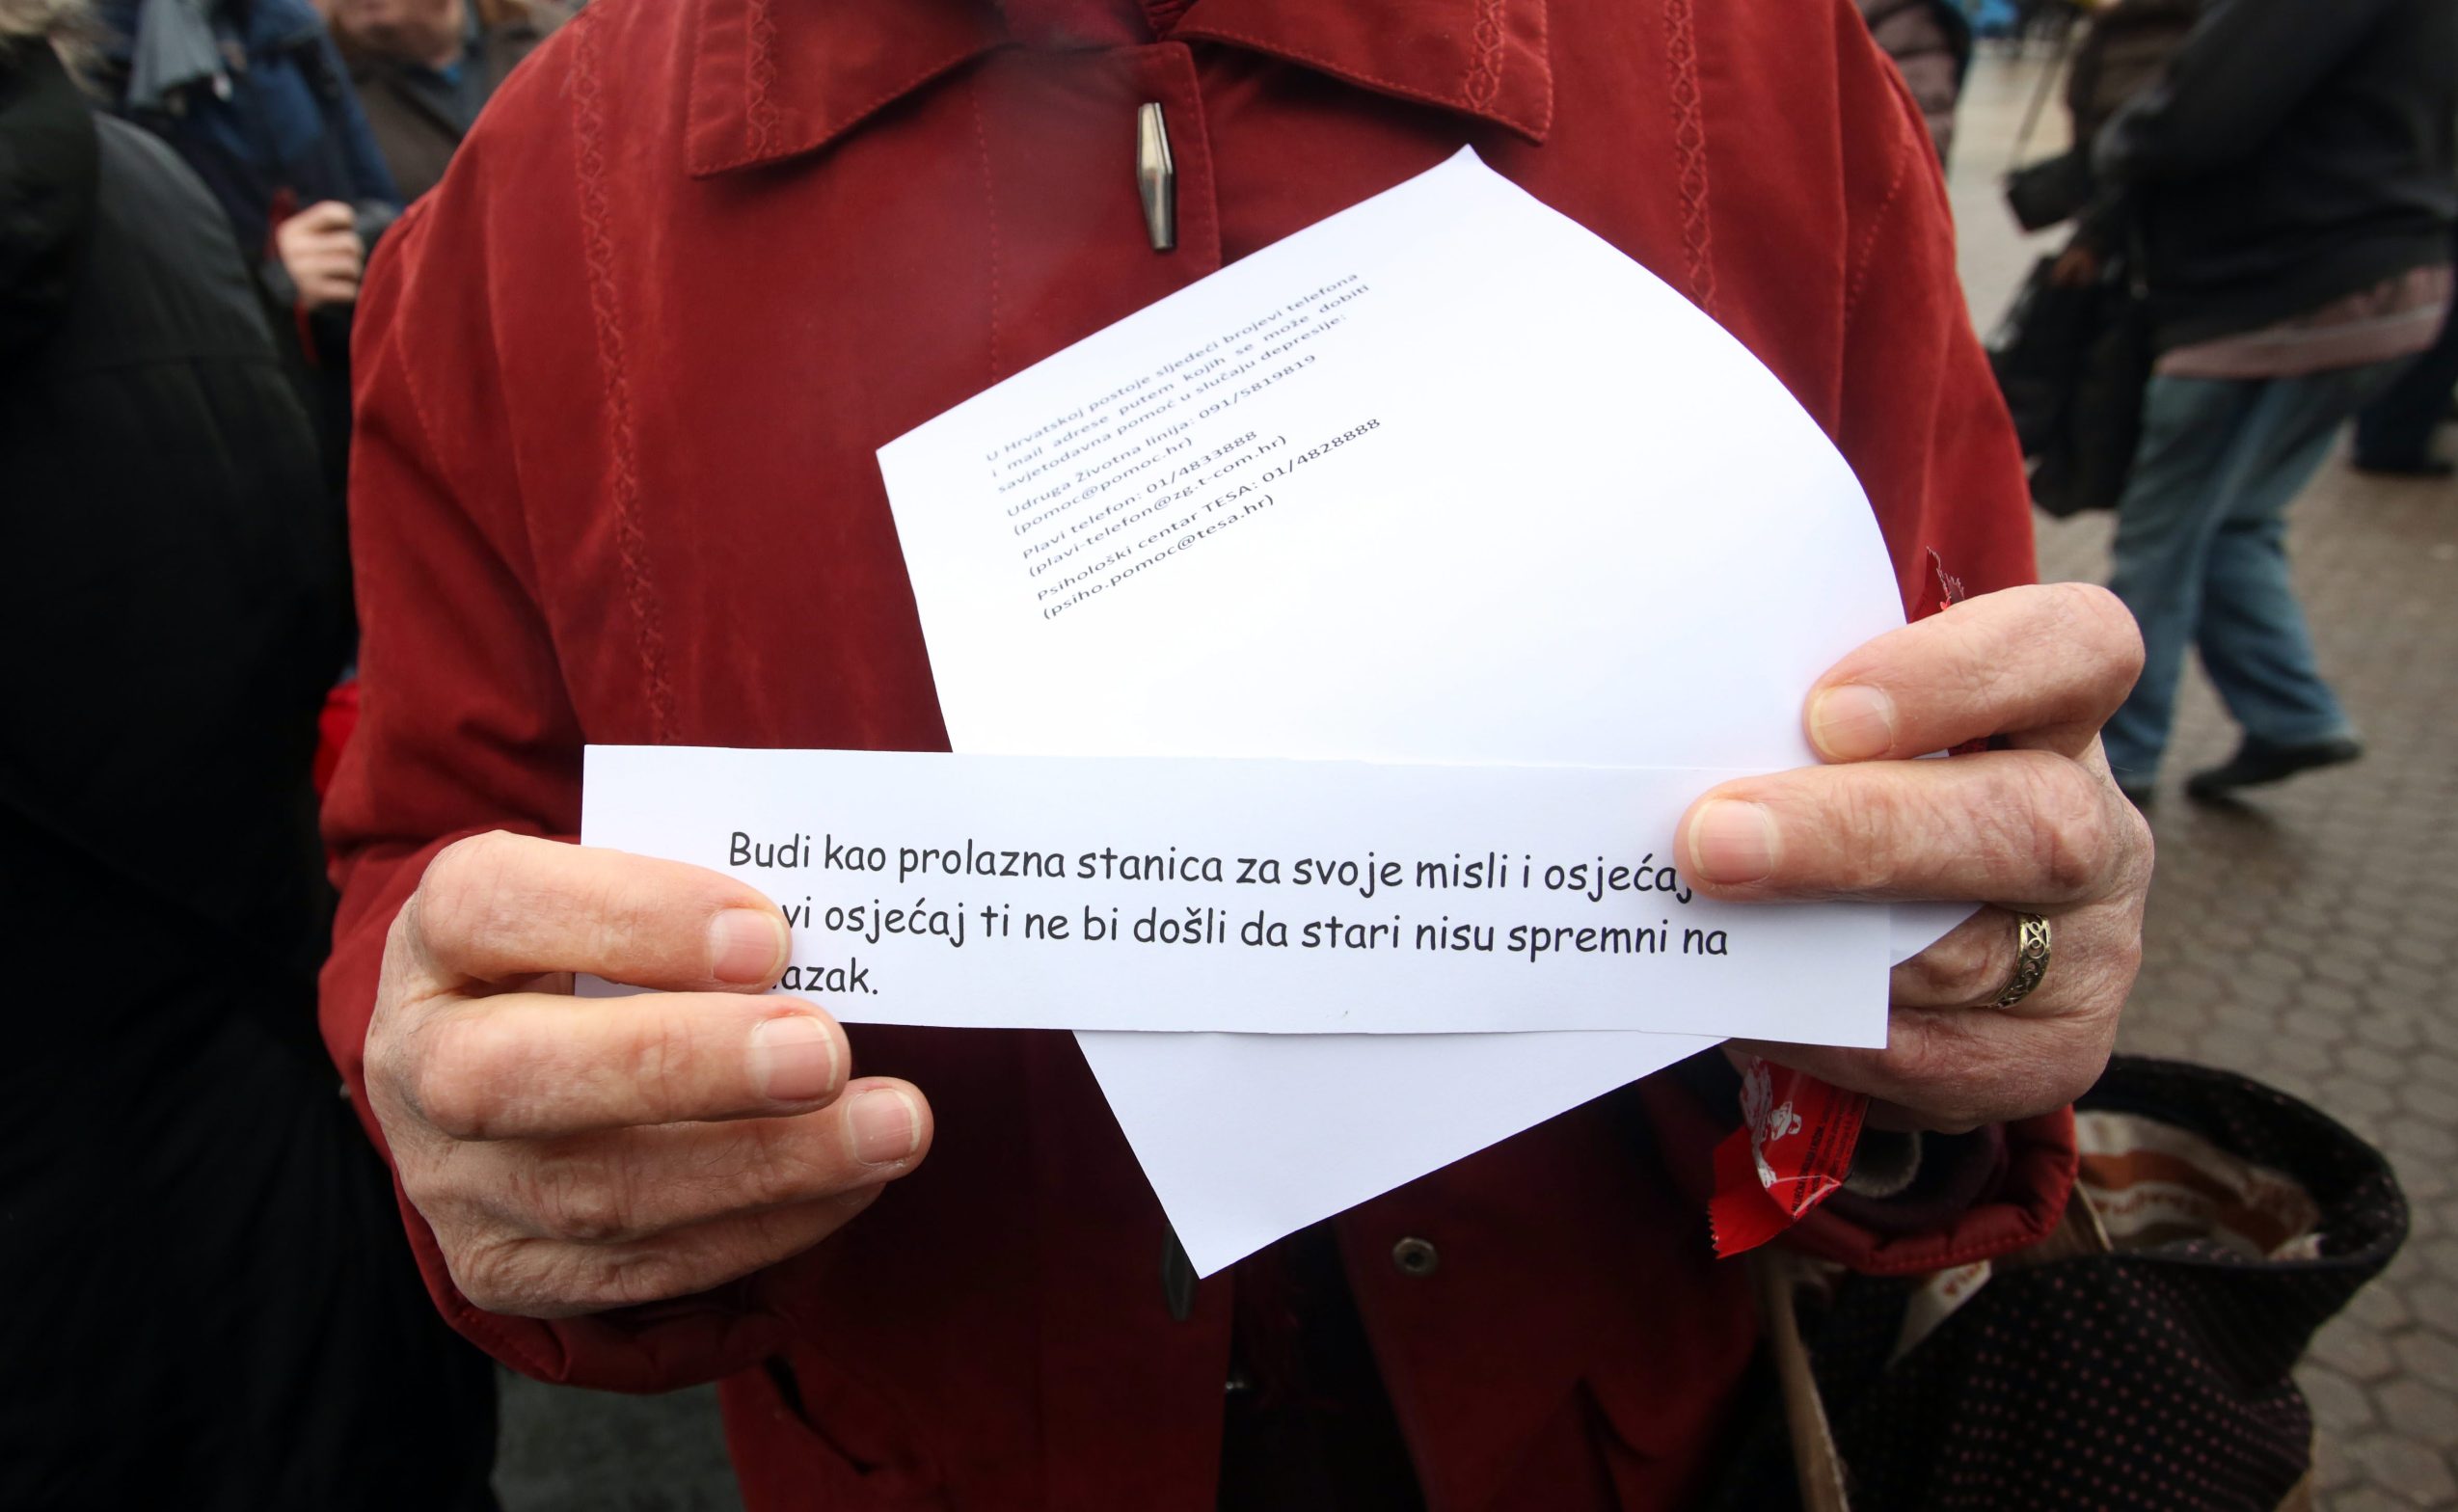 U Hrvatskoj postoje sljedeći brojevi telefona
i mail adrese putem kojih se može dobiti
savjetodavna pomoć u slučaju depresije:
Udruga Životna linija: 091/5819819
(pomoc@pomoc.hr)
Plavi telefon: 01/4833888
(plavi-telefon@zg.t-com.hr)
Psihološki centar TESA: 01/4828888
(psiho.pomoc@tesa.hr)
Budi kao prolazna stanica za svoje misli i osjećaj
vi osjećaj ti ne bi došli da stari nisu spremni na
azak.